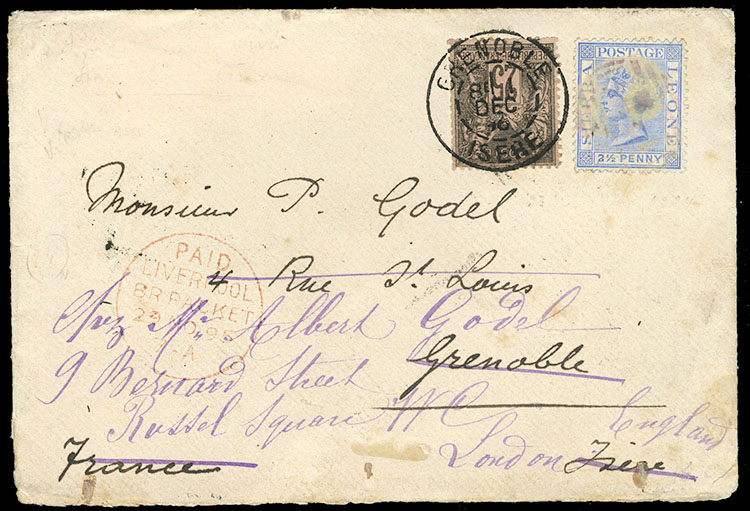 GRENOBLE
1 DEC 1
ISERE
25
SIERRA
POSTAGE
LEONE
2½ PENNY
Monsieur P. Godel
4 Rue St Louis
Grenoble
Isère
France
PAID
LIVERPOOL
BR PACKET
95
A
Chez Mr Albert Godel
9 Bernard Street
Russel Square WC
London
England